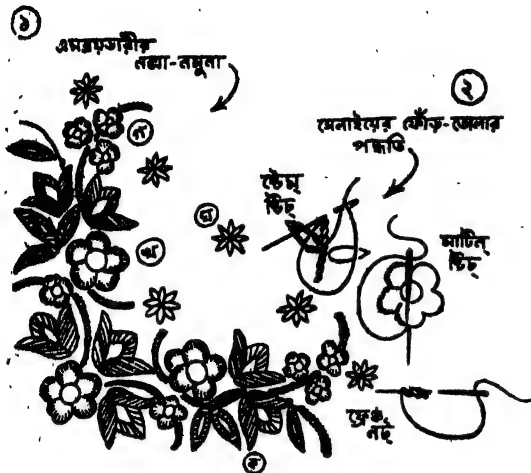 ১
এমব্রয়ডারীর
নক্সা-নমুনা
২
সেলাইয়ের ফোঁড়-তোলার
পদ্ধতি
গ
ষ্টেম্
ষ্টিচ্
ঘ
সাটিন্
ষ্টিচ্
খ
ফ্রেঞ্চ্
নট্
ক